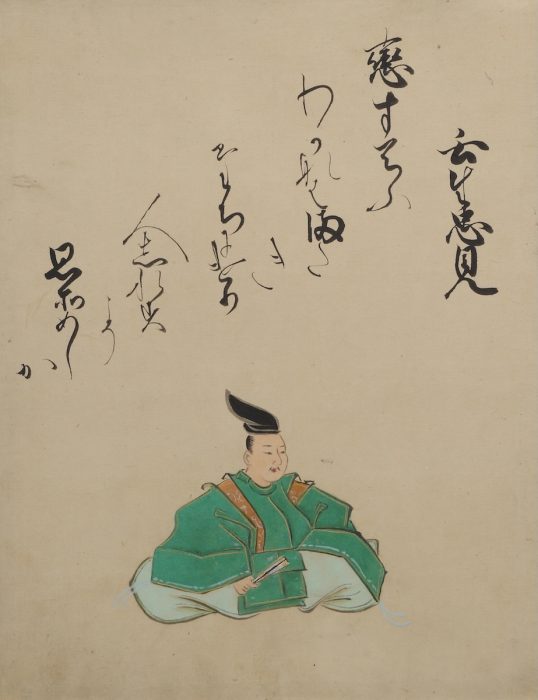 壬生忠見
戀すてふ
わか名はまた
き
たちにけり
人しれす
こそ
思ひそめし
か